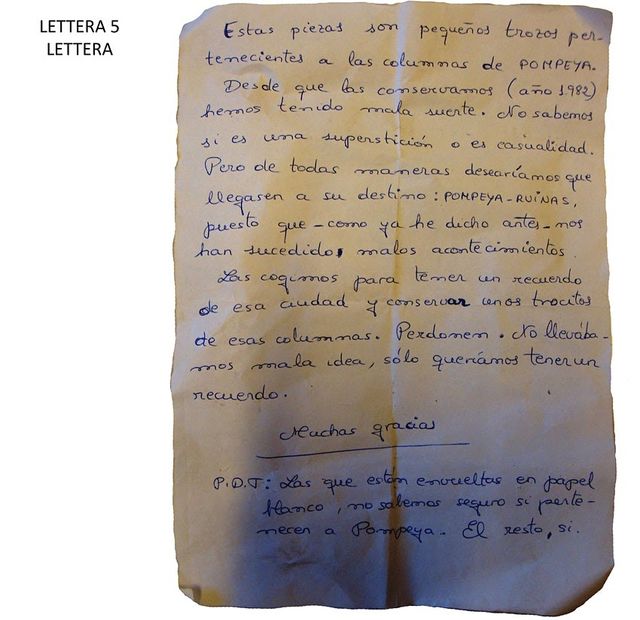 LETTERA 5
LETTERA
Estas piezas son pequeños trozos per-
tenecientes a las columnas de POMPEYA.
Desde que las conservamos (año 1982)
hemos tenido mala suerte. No sabemos
si es una superstición o es casualidad.
Pero de todas maneras desearíamos que
llegasen a su destino: POMPEYA-RUINAS,
puesto que -como ya he dicho antes- nos
han sucedido, malos acontecimientos.
Las cogimos para tener un recuerdo
de esa ciudad y conservar unos trocitos
de esas columnas. Perdonen. No llevába-
mos mala idea, sólo queríamos tener un
recuerdo.
Muchas gracias
P.D.T: Las que están envueltas en papel
blanco, no sabemos seguro si perte-
necen a Pompeya. El resto, si.